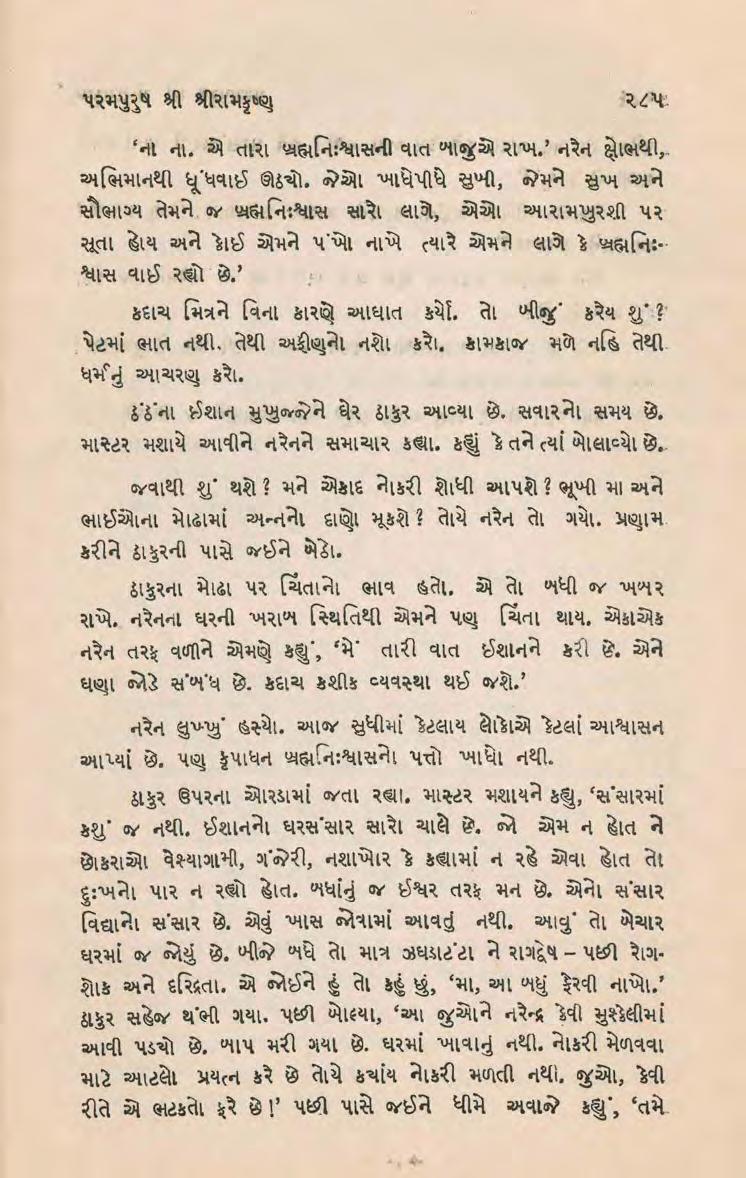 પરમપુરુષ શ્રી શ્રીરામકૃષ્ણ ૨૮૫
‘ના ના. એ તારા બ્રહ્મનિઃશ્વાસની વાત બાજુએ રાખ.’ નરેન ક્ષોભથી,
અભિમાનથી ધૂંધવાઈ ઊઠ્યો. જેઓ ખાધેપીધે સુખી, જેમને સુખ અને
સૌભાગ્ય તેમને જ બ્રહ્મનિઃશ્વાસ સારો લાગે, એઓ આરામખુરશી પર
સૂતા હોય અને કોઈ એમને પંખો નાખે ત્યારે એમને લાગે કે બ્રહ્મનિઃ-
શ્વાસ વાઈ રહ્યો છે.’
કદાચ મિત્રને વિના કારણે આઘાત કર્યો. તો બીજું કરેય શું ?
પેટમાં ભાત નથી. તેથી અફીણનો નશો કરો. કામકાજ મળે નહિ તેથી
ધર્મનું આચરણ કરો.
ઠંઠંના ઈશાન મુખુજ્જેને ઘેર ઠાકુર આવ્યા છે. સવારનો સમય છે.
માસ્ટર મશાયે આવીને નરેનને સમાચાર કહ્યા. કહ્યું કે તને ત્યાં બોલાવ્યો છે.
જવાથી શું થશે ? મને એકાદ નોકરી શોધી આપશે ? ભૂખી મા અને
ભાઈઓના મોઢામાં અન્નનો દાણો મૂકશે ? તોયે નરેન તો ગયો. પ્રણામ
કરીને ઠાકુરની પાસે જઈને બેઠો.
ઠાકુરના મોઢા પર ચિંતાનો ભાવ હતો. એ તો બધી જ ખબર
રાખે. નરેનના ઘરની ખરાબ સ્થિતિથી એમને પણ ચિંતા થાય. એકાએક
નરેન તરફ વળીને એમણે કહ્યું, ‘મેં તારી વાત ઈશાનને કરી છે. એને
ઘણા જોડે સંબંધ છે. કદાચ કશીક વ્યવસ્થા થઈ જશે.’
નરેન લુખ્ખું હસ્યો. આજ સુધીમાં કેટલાય લોકોએ કેટલાં આશ્વાસન
આપ્યાં છે. પણ કૃપાધન બ્રહ્મનિઃશ્વાસનો પત્તો ખાધો નથી.
ઠાકુર ઉપરના ઓરડામાં જતા રહ્યા. માસ્ટર મશાયને કહ્યુ, ‘સંસારમાં
કશું જ નથી. ઈશાનનો ઘરસંસાર સારો ચાલે છે. જો એમ ન હોત ને
છોકરાઓ વેશ્યાગામી, ગંજેરી, નશાખોર કે કહ્યામાં ન રહે એવા હોત તો
દુઃખનો પાર ન રહ્યો હોત. બધાંનું જ ઈશ્વર તરફ મન છે. એનો સંસાર
વિદ્યાનો સંસાર છે. એવું ખાસ જોવામાં આવતું નથી. આવું તો બેચાર
ઘરમાં જ જોયું છે. બીજે બધે તો માત્ર ઝઘડાટંટા ને રાગદ્વેષ – પછી રોગ-
શોક અને દરિદ્રતા. એ જોઈને હું તો કહું છું, ‘મા, આ બધું ફેરવી નાખો.’
ઠાકુર સહેજ થંભી ગયા. પછી બોલ્યા, ‘આ જુઓને નરેન્દ્ર કેવી મુશ્કેલીમાં
આવી પડ્યો છે. બાપ મરી ગયા છે. ઘરમાં ખાવાનું નથી. નોકરી મેળવવા
માટે આટલો પ્રયત્ન કરે છે તોયે ક્યાંય નોકરી મળતી નથી. જુઓ, કેવી
રીતે એ ભટકતો ફરે છે !’ પછી પાસે જઈને ધીમે અવાજે કહ્યું, ‘તમે